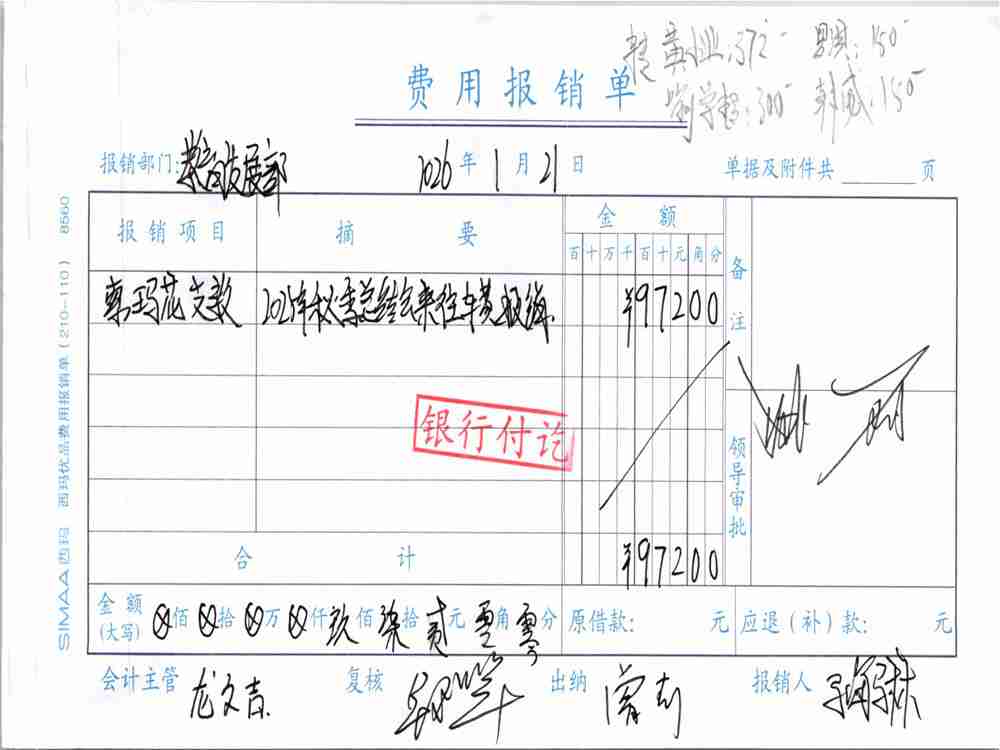 黄 372- 150-
300- 韩威:150-
费用报销单
报销部门: 发展部 2026年1月21日 单据及附件共 页
报销项目 摘要 金额 备注
百十万千百十元角分
支教 2025年秋季总结会来往车费报销. ¥97200
银行付讫
领导审批
合计 ¥97200
金额(大写) ⊗佰⊗拾⊗万⊗仟玖佰柒拾贰元零角零分 原借款: 元 应退(补)款: 元
会计主管 龙文吉 复核 出纳 曾 报销人
SIMAA 西玛 西玛优品费用报销单(210-110) 8560